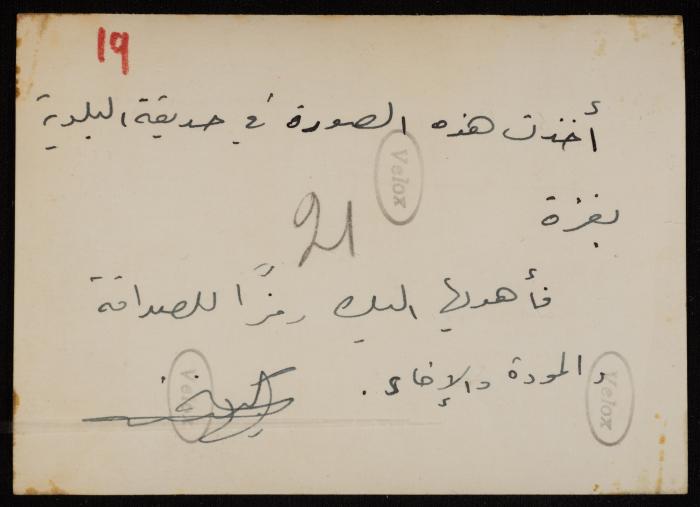 19
أخذت هذه الصورة في حديقة البلدية
Velox
بغزة
21
فأهديها اليك رمزاً للصداقة
والمودة والإخاء.
Velox
Velox